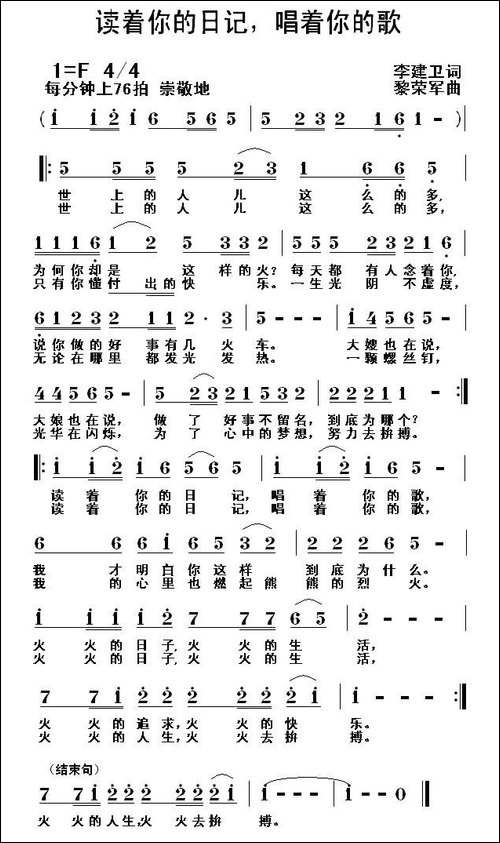 读着你的日记，唱着你的歌
1=F 4/4
每分钟上76拍 崇敬地
李建卫词
黎荣军曲
(i i 2 i 6 5 6 5 | 5 2 3 2 1 6 1 - )
5 5 5 5 2 3 1 6 6 5 |
世 上 的 人 儿 这 么 的 多，
世 上 的 人 儿 这 么 的 多，
1 1 1 6 1 2 5 3 3 2 | 5 5 3 2 2 1 6 1 2 |
为何你却是 这 样的火？每天都 有人念着你，
只有你懂付 出的快 乐。一生光 阴 不虚度，
6 1 2 3 2 1 1 2 · 3 | 5 - - - | i 4 5 6 5 - |
说你做的好 事有几 火 车。 大嫂也在说，
无论在哪里 都发光 发 热。 一颗螺丝钉，
4 4 5 6 5 - | 5 2 3 2 1 5 3 2 | 2 2 2 1 1 - :|
大娘也在说， 做 了 好事不留名，到底为哪个？
光华在闪烁， 为 了 心中的梦想，努力去拚搏。
i i 2 i 6 5 6 5 | i i 2 i 6 5 |
读 着 你 的 日 记，唱 着 你 的 歌，
读 着 你 的 日 记，唱 着 你 的 歌，
6 6 6 5 6 2 3 2 | 2 2 2 6 5 - |
我 才 明白你这样 到底为什么。
我 的 心里也燃起熊 熊的烈 火。
i i i i 2 7 7 7 6 5 | 2 - - - |
火 火的日子，火 火的生 活，
火 火的日子，火 火的生 活，
7 7 i 2 2 2 2 2 i | i - - - :|
火 火的追求，火 火的快 乐。
火 火的人生，火 火去拚 搏。
（结束句）
7 7 i 2 2 2 2 2 i | i - - - | i - - 0 ‖
火 火的人生，火 火去拚 搏。